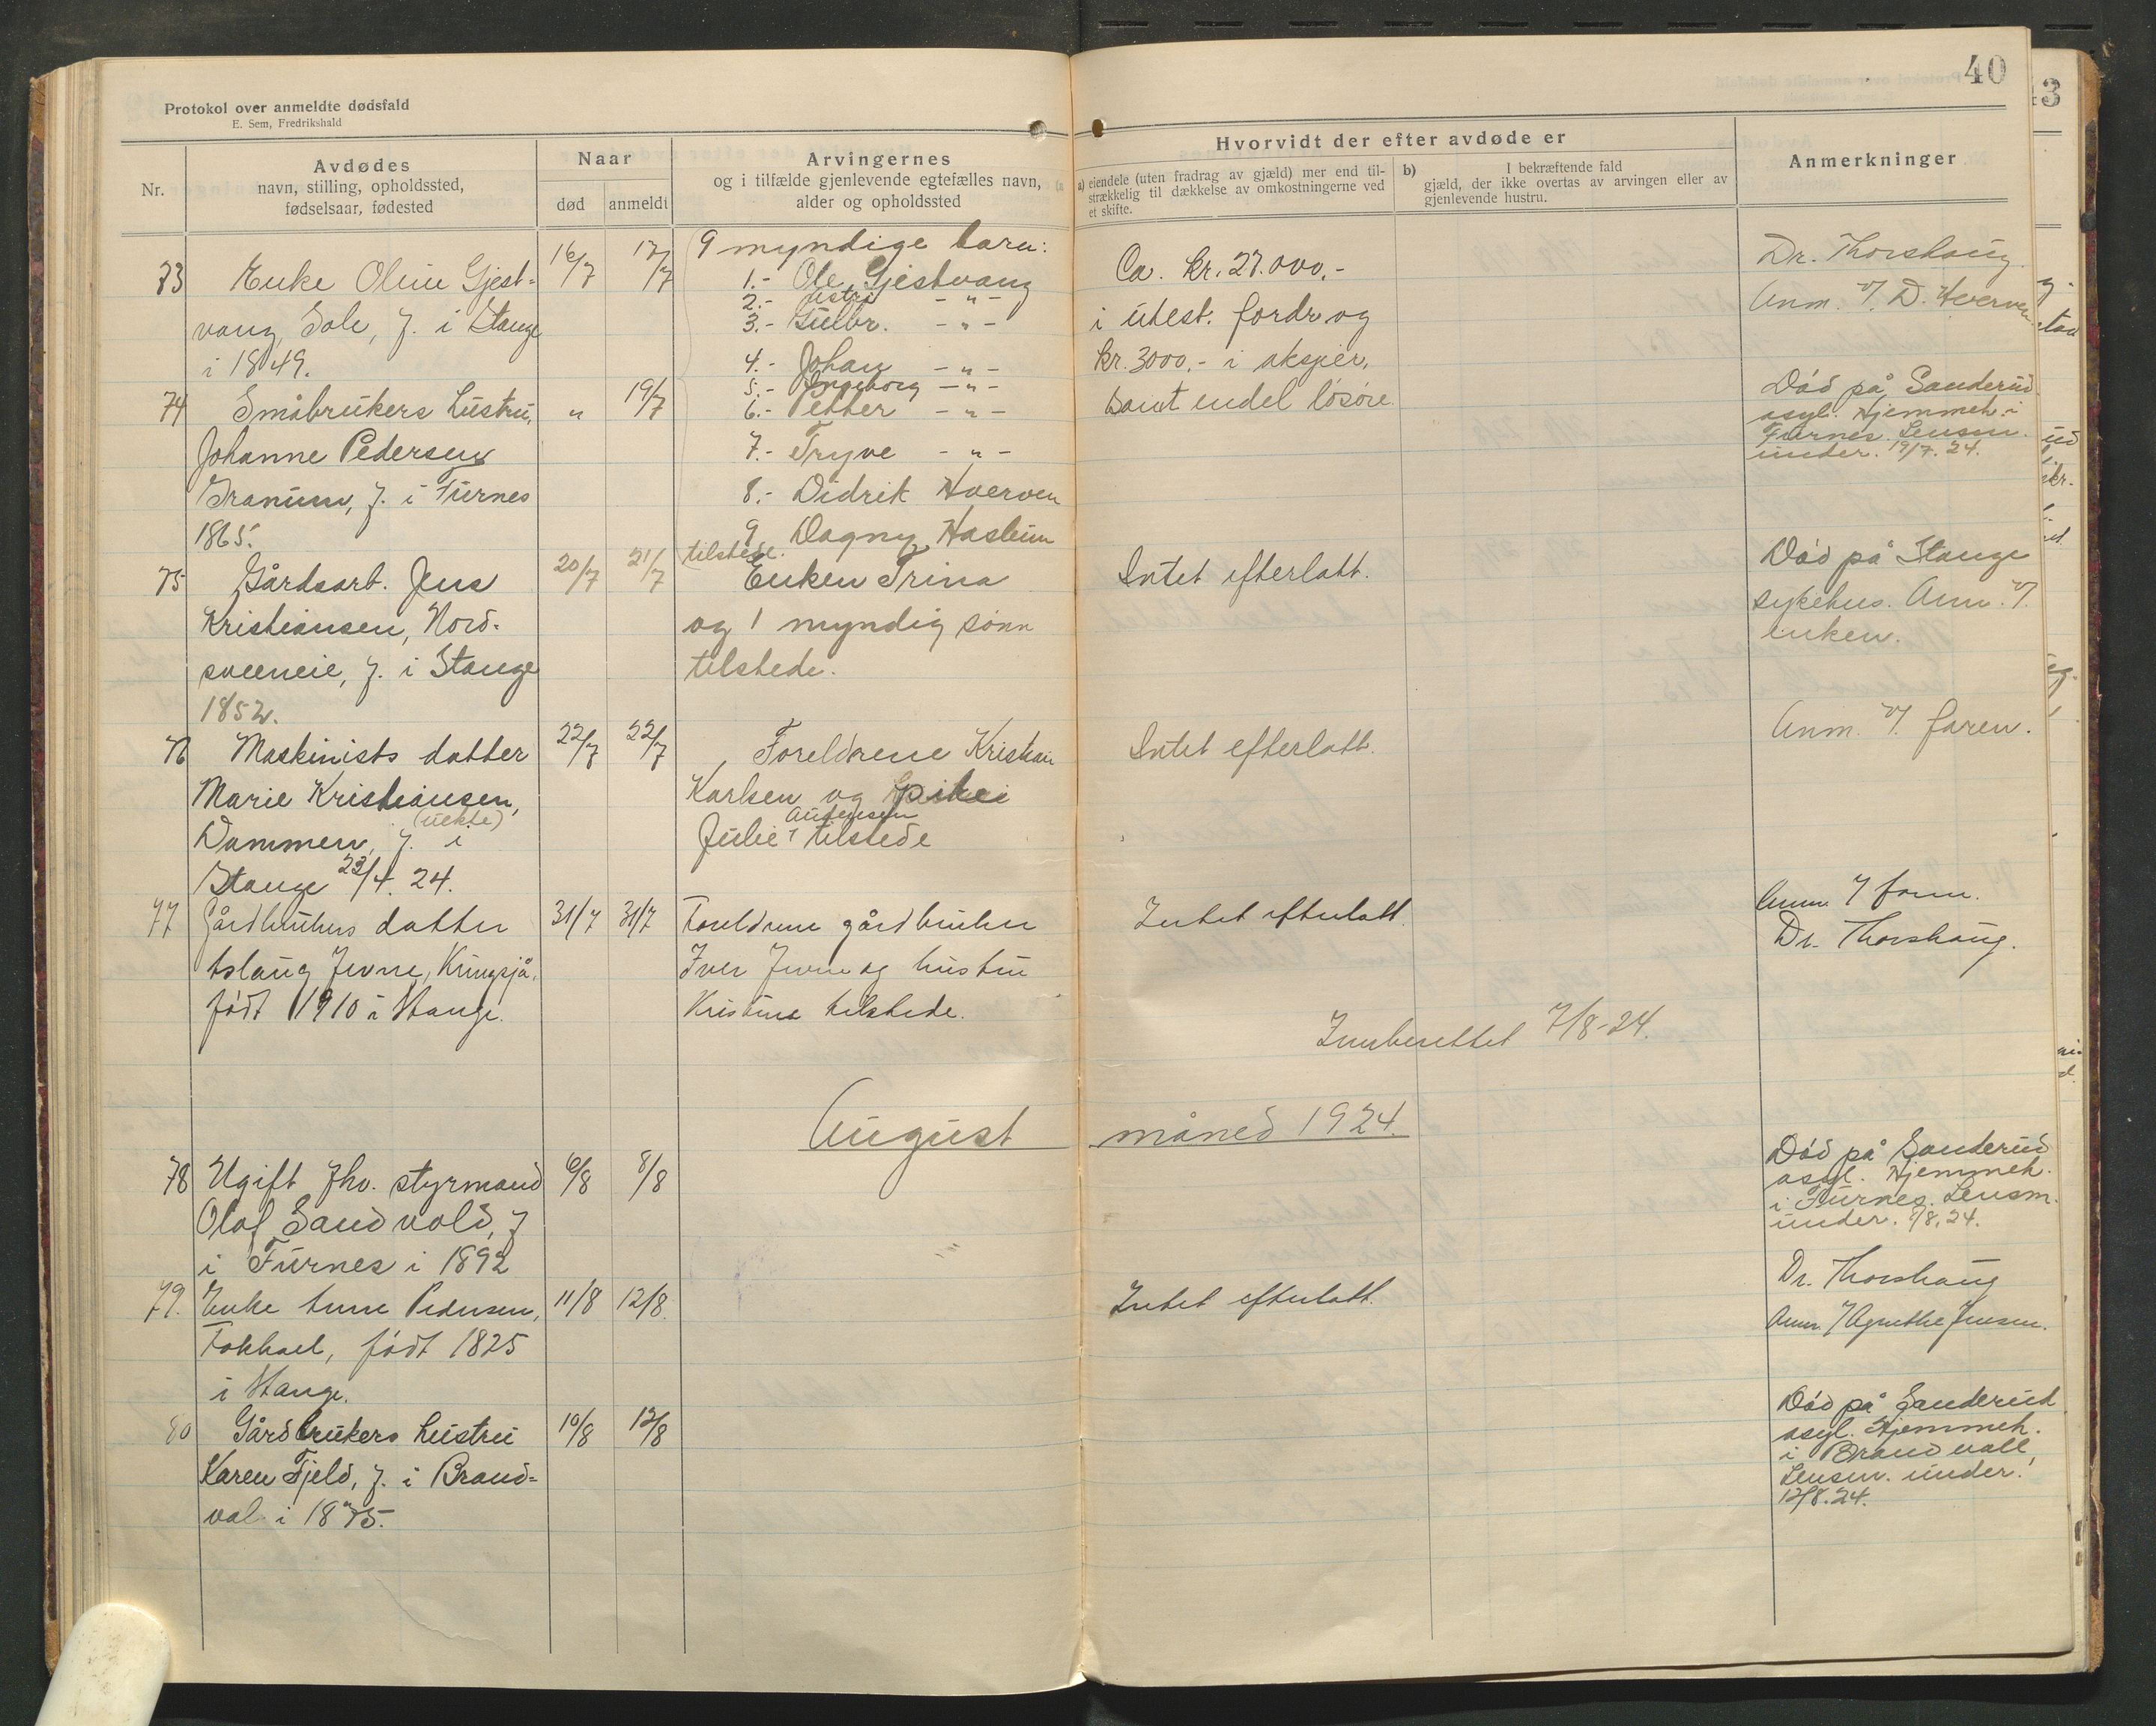 Protokol over anmeldte dødsfald
E. Sem, Fredrikshald
40
Nr.
Avdødes
navn, stilling, opholdssted,
fødselsaar, fødested
Naar
død
anmeldt
Arvingernes
og i tilfælde gjenlevende egtefælles navn,
alder og opholdssted
Hvorvidt der efter avdøde er
a) eiendele (uten fradrag av gjæld) mer end til-
strækkelig til dækkelse av omkostningerne ved
et skifte.
b) I bekræftende fald
gjæld, der ikke overtas av arvingen eller av
gjenlevende hustru.
Anmerkninger
73 Enke Oline Gjest-
vang, Sole, f. i Stange
i 1849.
16/7 17/7
9 myndige barn:
1.- Ole Gjestvang
2.- - " -
3.- Gulbr. - " -
4.- Johan - " -
5.- Ingeborg - " -
6.- Petter - " -
7.- Tryve - " -
8.- Didrik Hverven
9 Dagny Haslum
tilstede.
Ca. kr. 27.000.-
i utest. fordr. og
kr. 3000.- i aksjer,
samt endel løsøre.
Dr. Thorshaug.
Anm. v/ D. Hverven
74 Småbrukers hustru,
Johanne Pedersen
Granum, f. i Furnes
1865.
" 19/7
Død på Sanderud
asyl. Hjemmeh. i
Furnes. Lensm.
under. 19/7.24.
75 Gårdsarb. Jens
Kristiansen, Nord-
sveeneie, f. i Stange
1852.
20/7 21/7
Enken Trina
og 1 myndig sønn
tilstede.
Intet efterlatt.
Død på Stange
sykehus. Anm. v/
enken.
76 Maskinists datter
Marie Kristiansen,
(uekte)
Dammen, f. i
Stange 23/4. 24.
22/7 22/7
Foreldrene Kristian
Karlsen og pike
Julie Andersen tilstede
Intet efterlatt.
Anm. v/ faren.
77 Gårdbrukers datter
Aslaug Jevne, Kringsjå,
født 1910 i Stange.
31/7 31/7
Foreldrene gårdbruker
Iver Jevne og hustru
Kristine tilstede.
Intet efterlatt.
Anm. v/ faren.
Dr. Thorshaug.
Innberettet 7/8-24.
August måned 1924.
78 Ugift fhv. styrmand
Olaf Sandvold, f
i Furnes i 1892
6/8 8/8
Død på Sanderud
asyl. Hjemmeh.
i Furnes. Lensm.
under. 8/8.24.
79. Enke Anne Pedersen,
Fokhoel, født 1825
i Stange.
11/8 12/8.
Intet efterlatt.
Dr. Thorshaug
Anm. v/ Agnethe Jensen.
80 Gårdbrukers hustru
Karen Fjeld, f. i Brand-
val i 1875.
10/8 12/8
Død på Sanderud
asyl. Hjemmeh.
i Brandvall,
Lensm. under.
12/8.24.